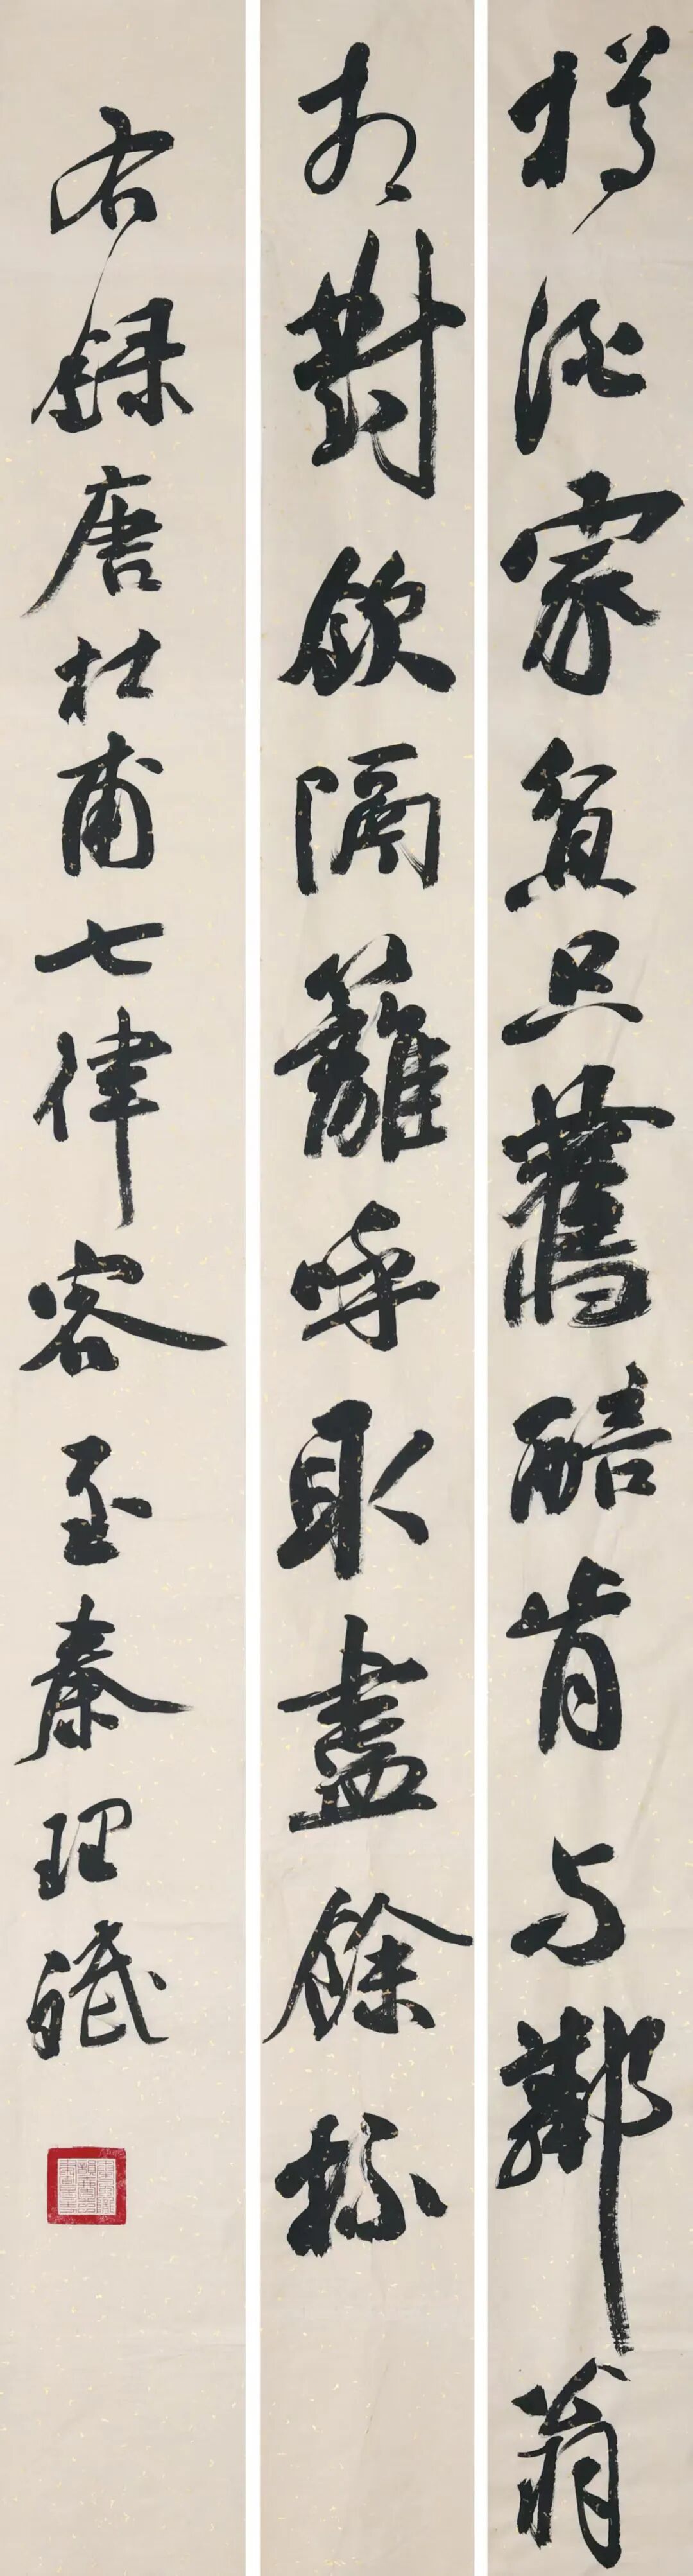 樽酒家貧只舊醅肯与鄰翁
相對飲隔籬呼取盡餘杯
右錄唐杜甫七律客至秦理斌